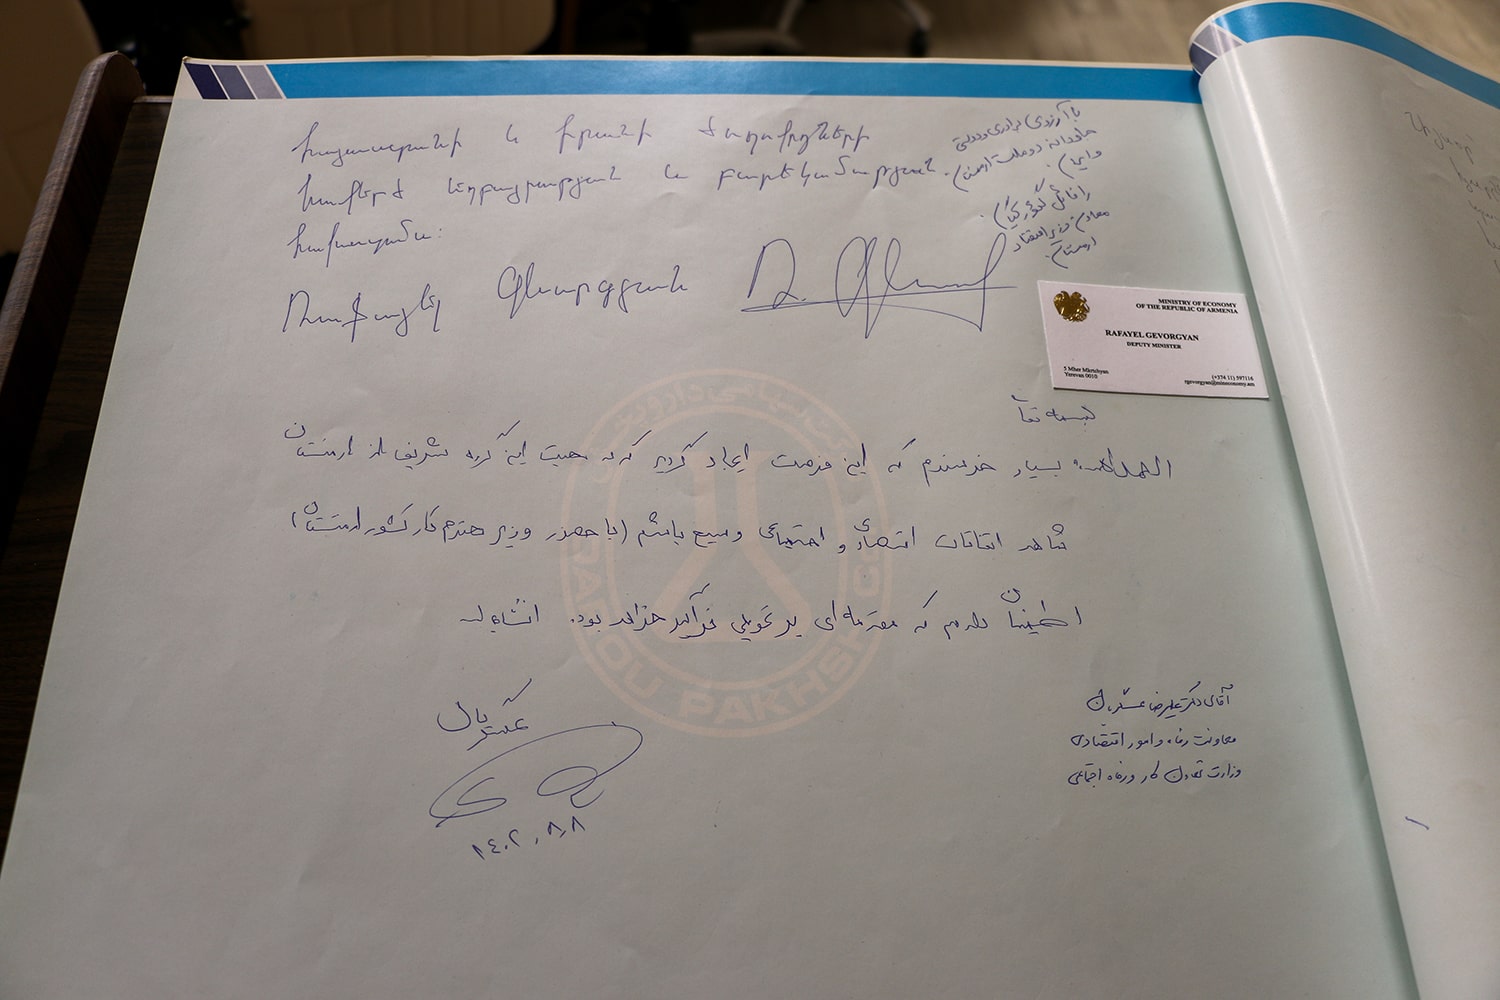 Հայաստանի և Իրանի ժողովուրդների
հավերժ եղբայրության և բարեկամության
հավատամս:
Ռաֆայել Գևորգյան
با آرزوی برادری و دوستی
جاودانه دو ملت ارمنستان
و ایران.
رافائل گئورگیان.
معاون وزیر اقتصاد
ارمنستان.
MINISTRY OF ECONOMY
OF THE REPUBLIC OF ARMENIA
RAFAYEL GEVORGYAN
DEPUTY MINISTER
5 Mher Mkrtchyan
Yerevan 0010
(+374 11) 597116
rgevorgyan@mineconomy.am
بسمه تعالی
الحمدلله بسیار خرسندم که این فرصت ایجاد گردید که به معیت این گروه شریف از ارمنستان
شاهد اتفاقات اقتصادی و اجتماعی وسیع باشم (با حضور وزیر محترم کار کشور ارمنستان)
اطمینان دارم که مقدمه‌ای بر تحولی فرآیند خواهد بود. انشاءالله
عسگریان
۱۴۰۲/۸/۸
آقای دکتر علیرضا عسگریان
معاونت رفاه و امور اقتصادی
وزارت تعاون کار و رفاه اجتماعی
DAROU PAKHSH